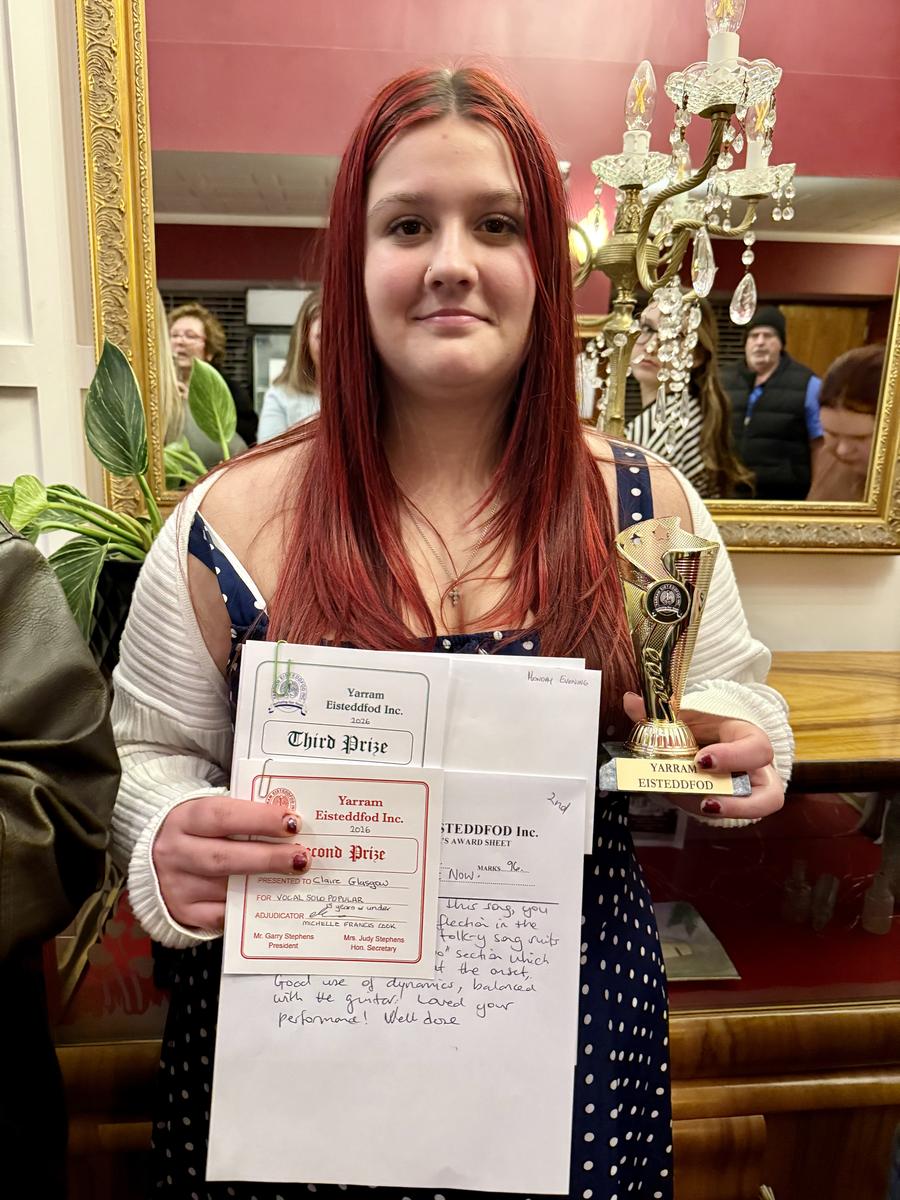 Monday Evening
Yarram
Eisteddfod Inc.
2026
Third Prize
Yarram
Eisteddfod Inc.
2026
Second Prize
PRESENTED TO Claire Glasgow
FOR VOCAL SOLO POPULAR
years & under
ADJUDICATOR
MICHELLE FRANCIS COOK
Mr. Garry Stephens
President
Mrs. Judy Stephens
Hon. Secretary
2nd
STEDDFOD Inc.
'S AWARD SHEET
NOW. MARKS 96.
This song, you
flection in the
folk-y song suits
section which
the onset,
Good use of dynamics, balanced
with the guitar. Loved your
performance! Well done
YARRAM
EISTEDDFOD